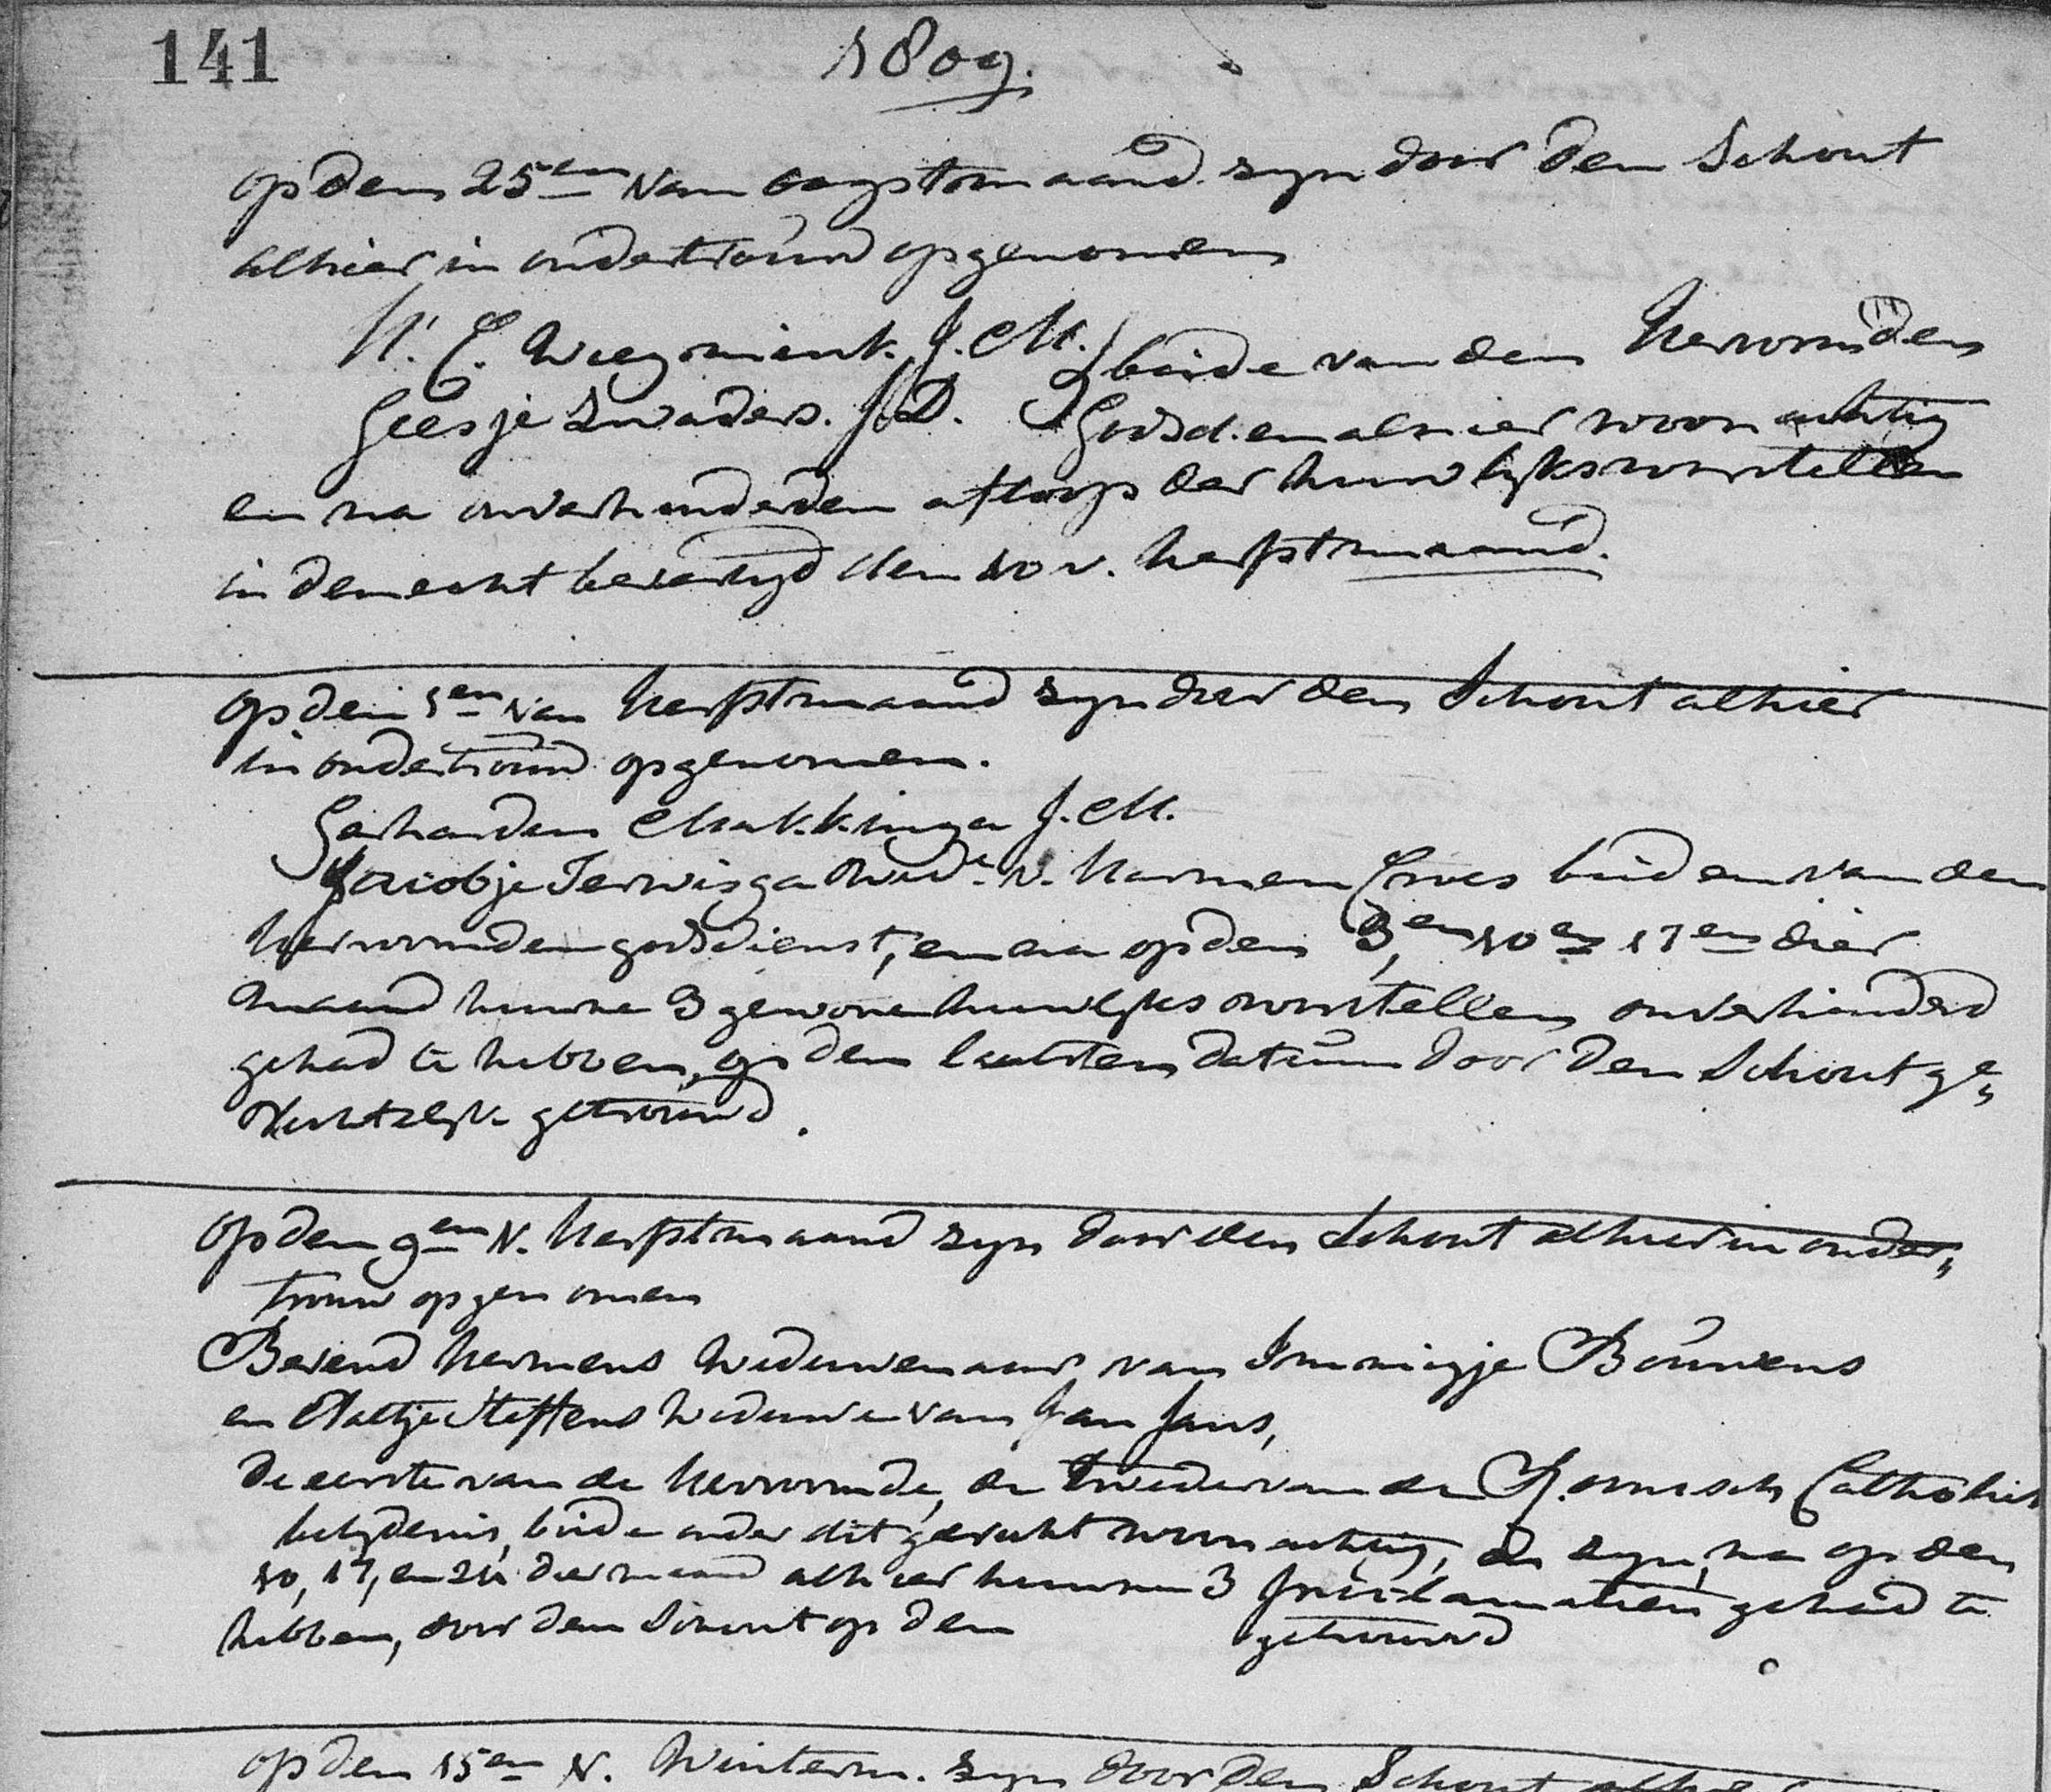 141
1809.
op den 25en van oogstmaand zyn door den Schout
alhier in ondertrouw opgenomen
Wiegmink. J. M. } beide van den Hervormden
Geesje Zwaders. J. D. } Godsd. en alhier woonachtig
en na onverhinderden afloop der huwlyksvoorstellen
in den echt bevestigd den 10 v. herfstmaand.
op den 1en van herfstmaand zyn door den Schout alhier
in ondertrouw opgenomen.
Gerhardus Makkinga J. M.
Jacobje Terwisga Wede. v. Harmen Croes beiden van den
hervormden godsdienst, en na op den 3, en 10en 17en dier
maand hunne 3 gewone huwlyks voorstellen onverhinderd
gehad te hebben, op den laatsten datum door den Schout ge„
rechtelyk getrouwd.
op den 9en v. herfstmaand zyn door den Schout alhier in onder„
trouw opgenomen
Berend Hermens Weduwenaar van Immigje Bouwens
en Aaltje Steffens Weduwe van Jan Jans,
de eerste van de hervormde, de tweede van de Roomsch Catholiek
belydenis, beide onder dit gerecht woonachtig, en zyn, na op den
10, 17, en 24 dier maand alhier hunnen 3 proclamatien gehad te
hebben, door den Schout op den getrouwd
op den 15en v. Winterm. zyn door den Schout alhier